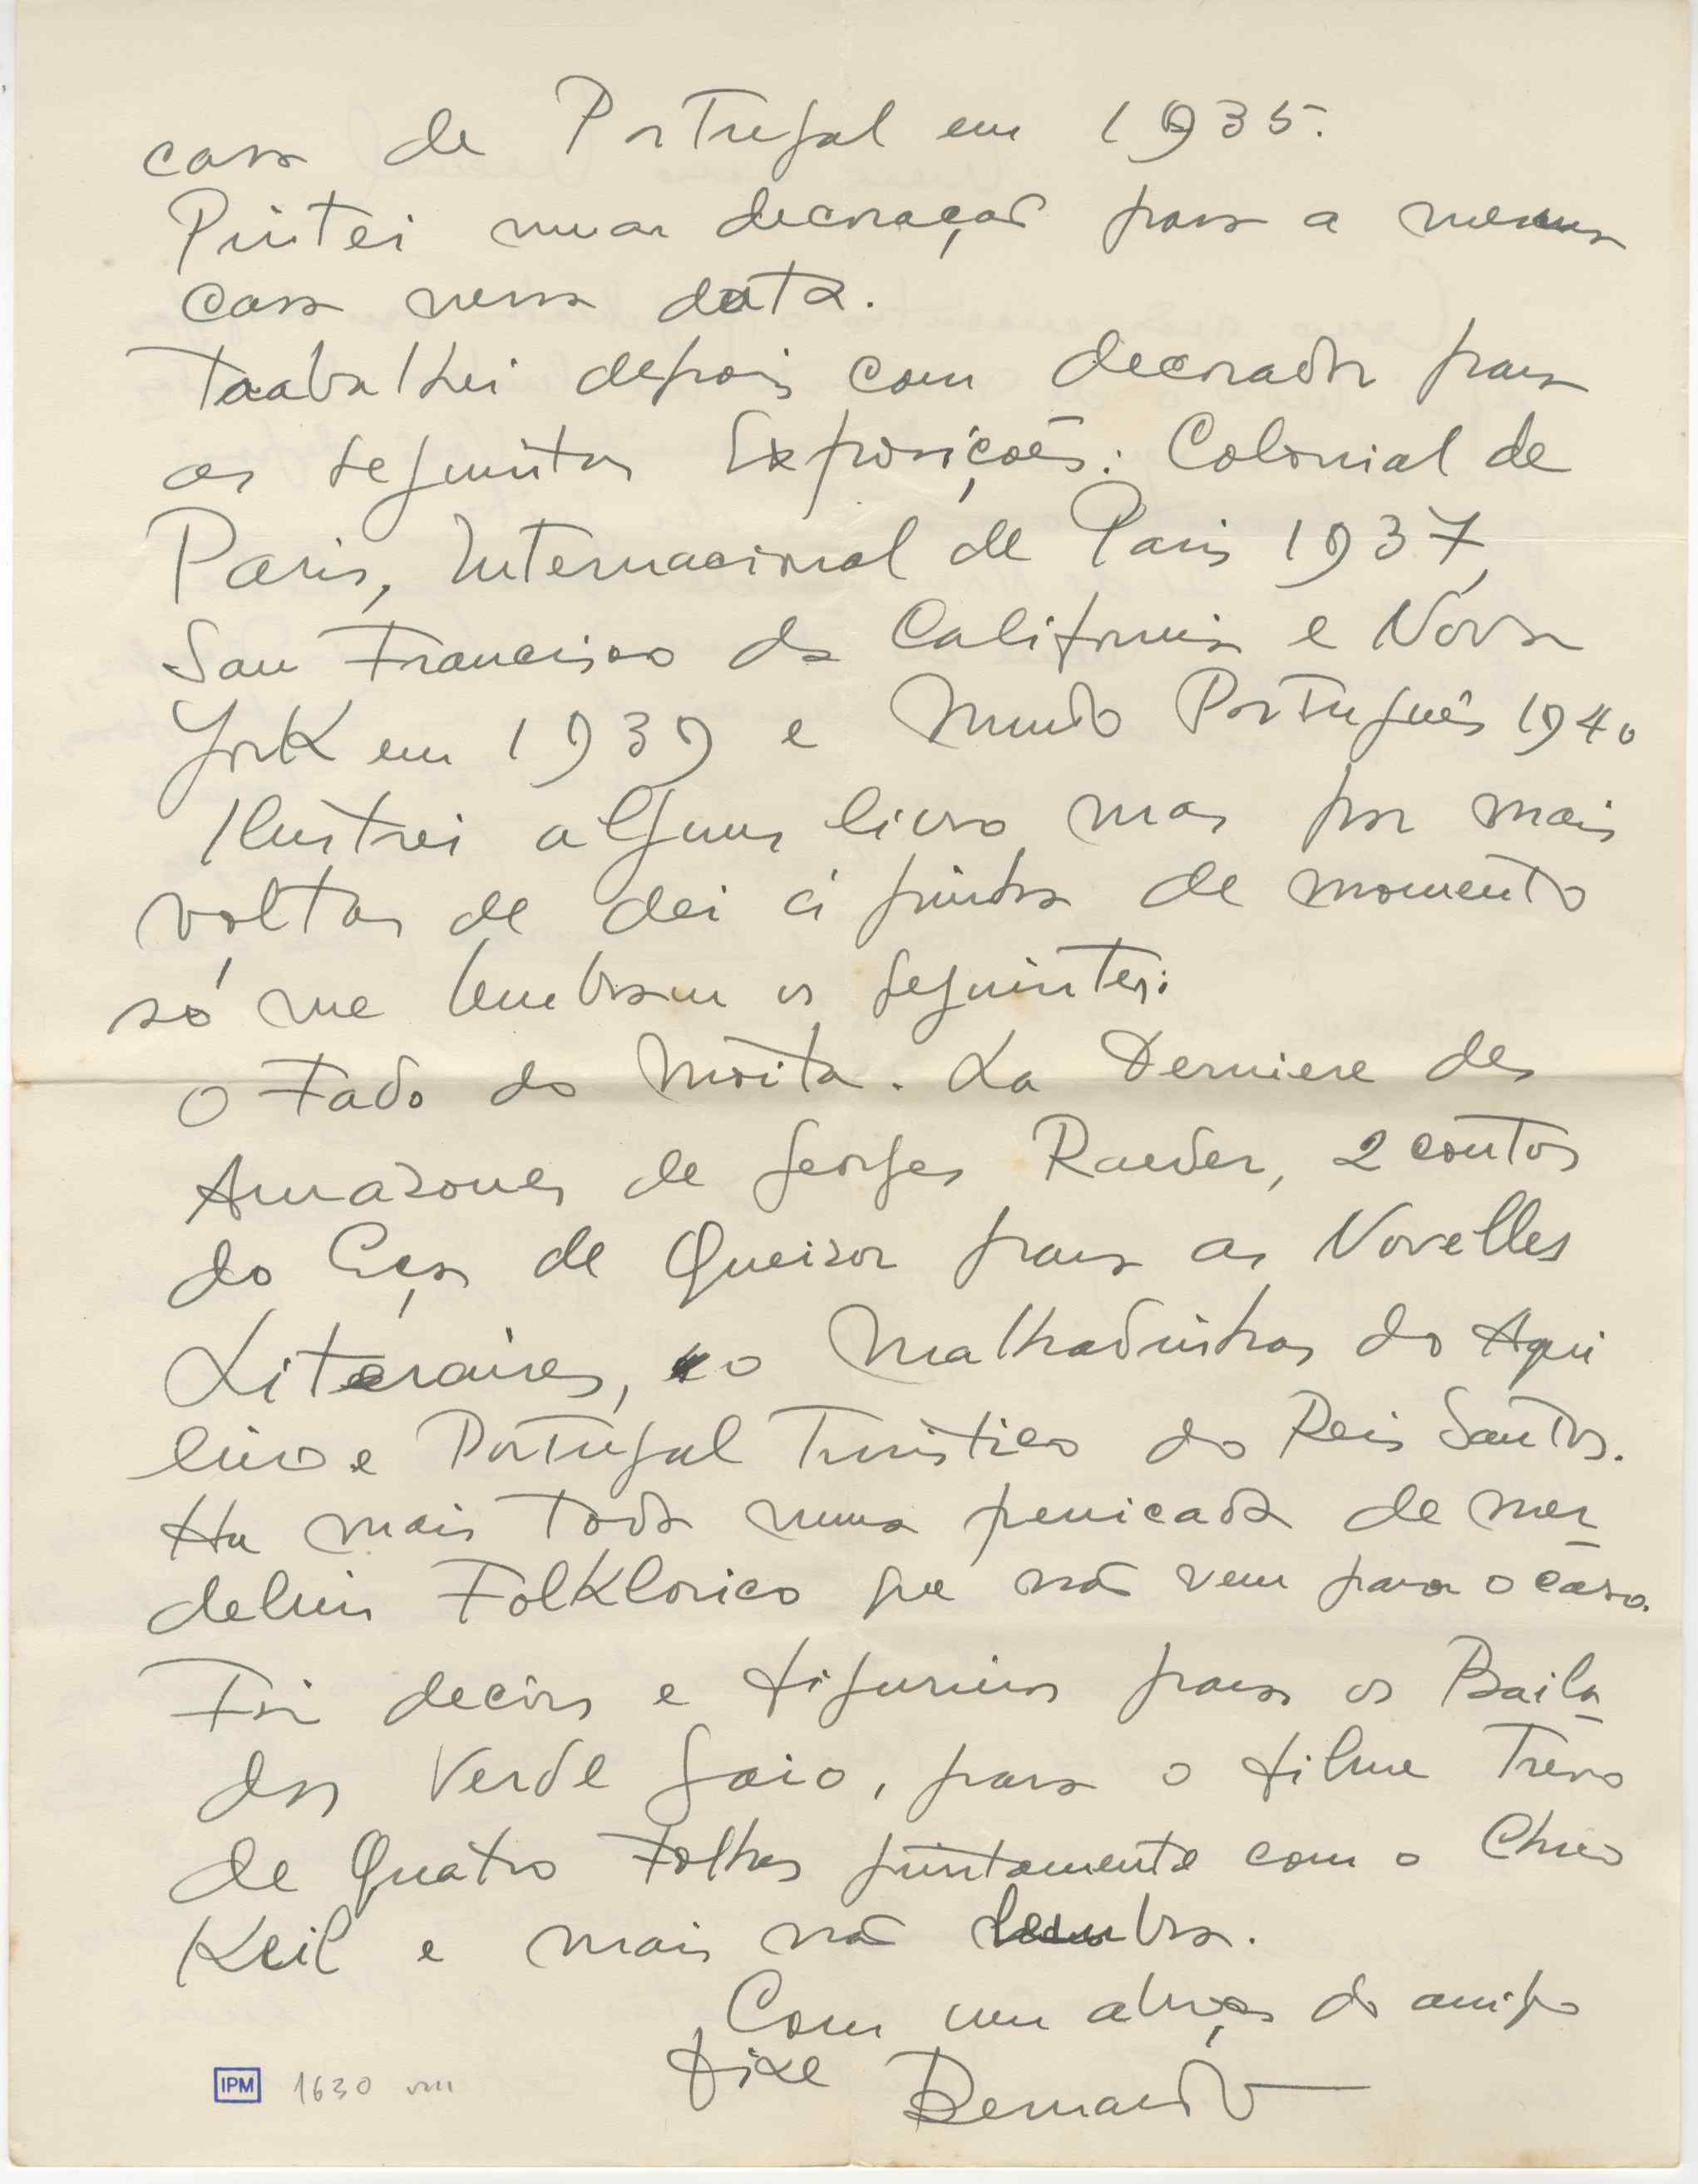 casa de Portugal em 1935.
Pintei uma decoração para a mesma
casa nessa data.
Trabalhei depois com decorador para
as seguintes Exposições: Colonial de
Paris, Internacional de Paris 1937,
San Francisco da California e Nova
York em 1939 e Mundo Português 1940
Ilustrei alguns livro mas por mais
voltas de dei á pinha de momento
só me lembram os seguintes:
O Fado do Moita. La Derniere des
Amazones de Georges Raeder, 2 contos
do Eça de Queiroz para as Novelles
Literaires, o Malhadinhas do Aqui
lino e Portugal Turistico do Reis Santos.
Ha mais toda uma penicada de mer_
delim Folklorico que não vem para o caso.
Fiz decors e figurinos para os Baila_
dos Verde Gaio, para o filme Trevo
de Quatro Folhas juntamente com o Chico
Keil e mais não lembra.
Com um abraço do amigo
fixe Bernardo
IPM 1630